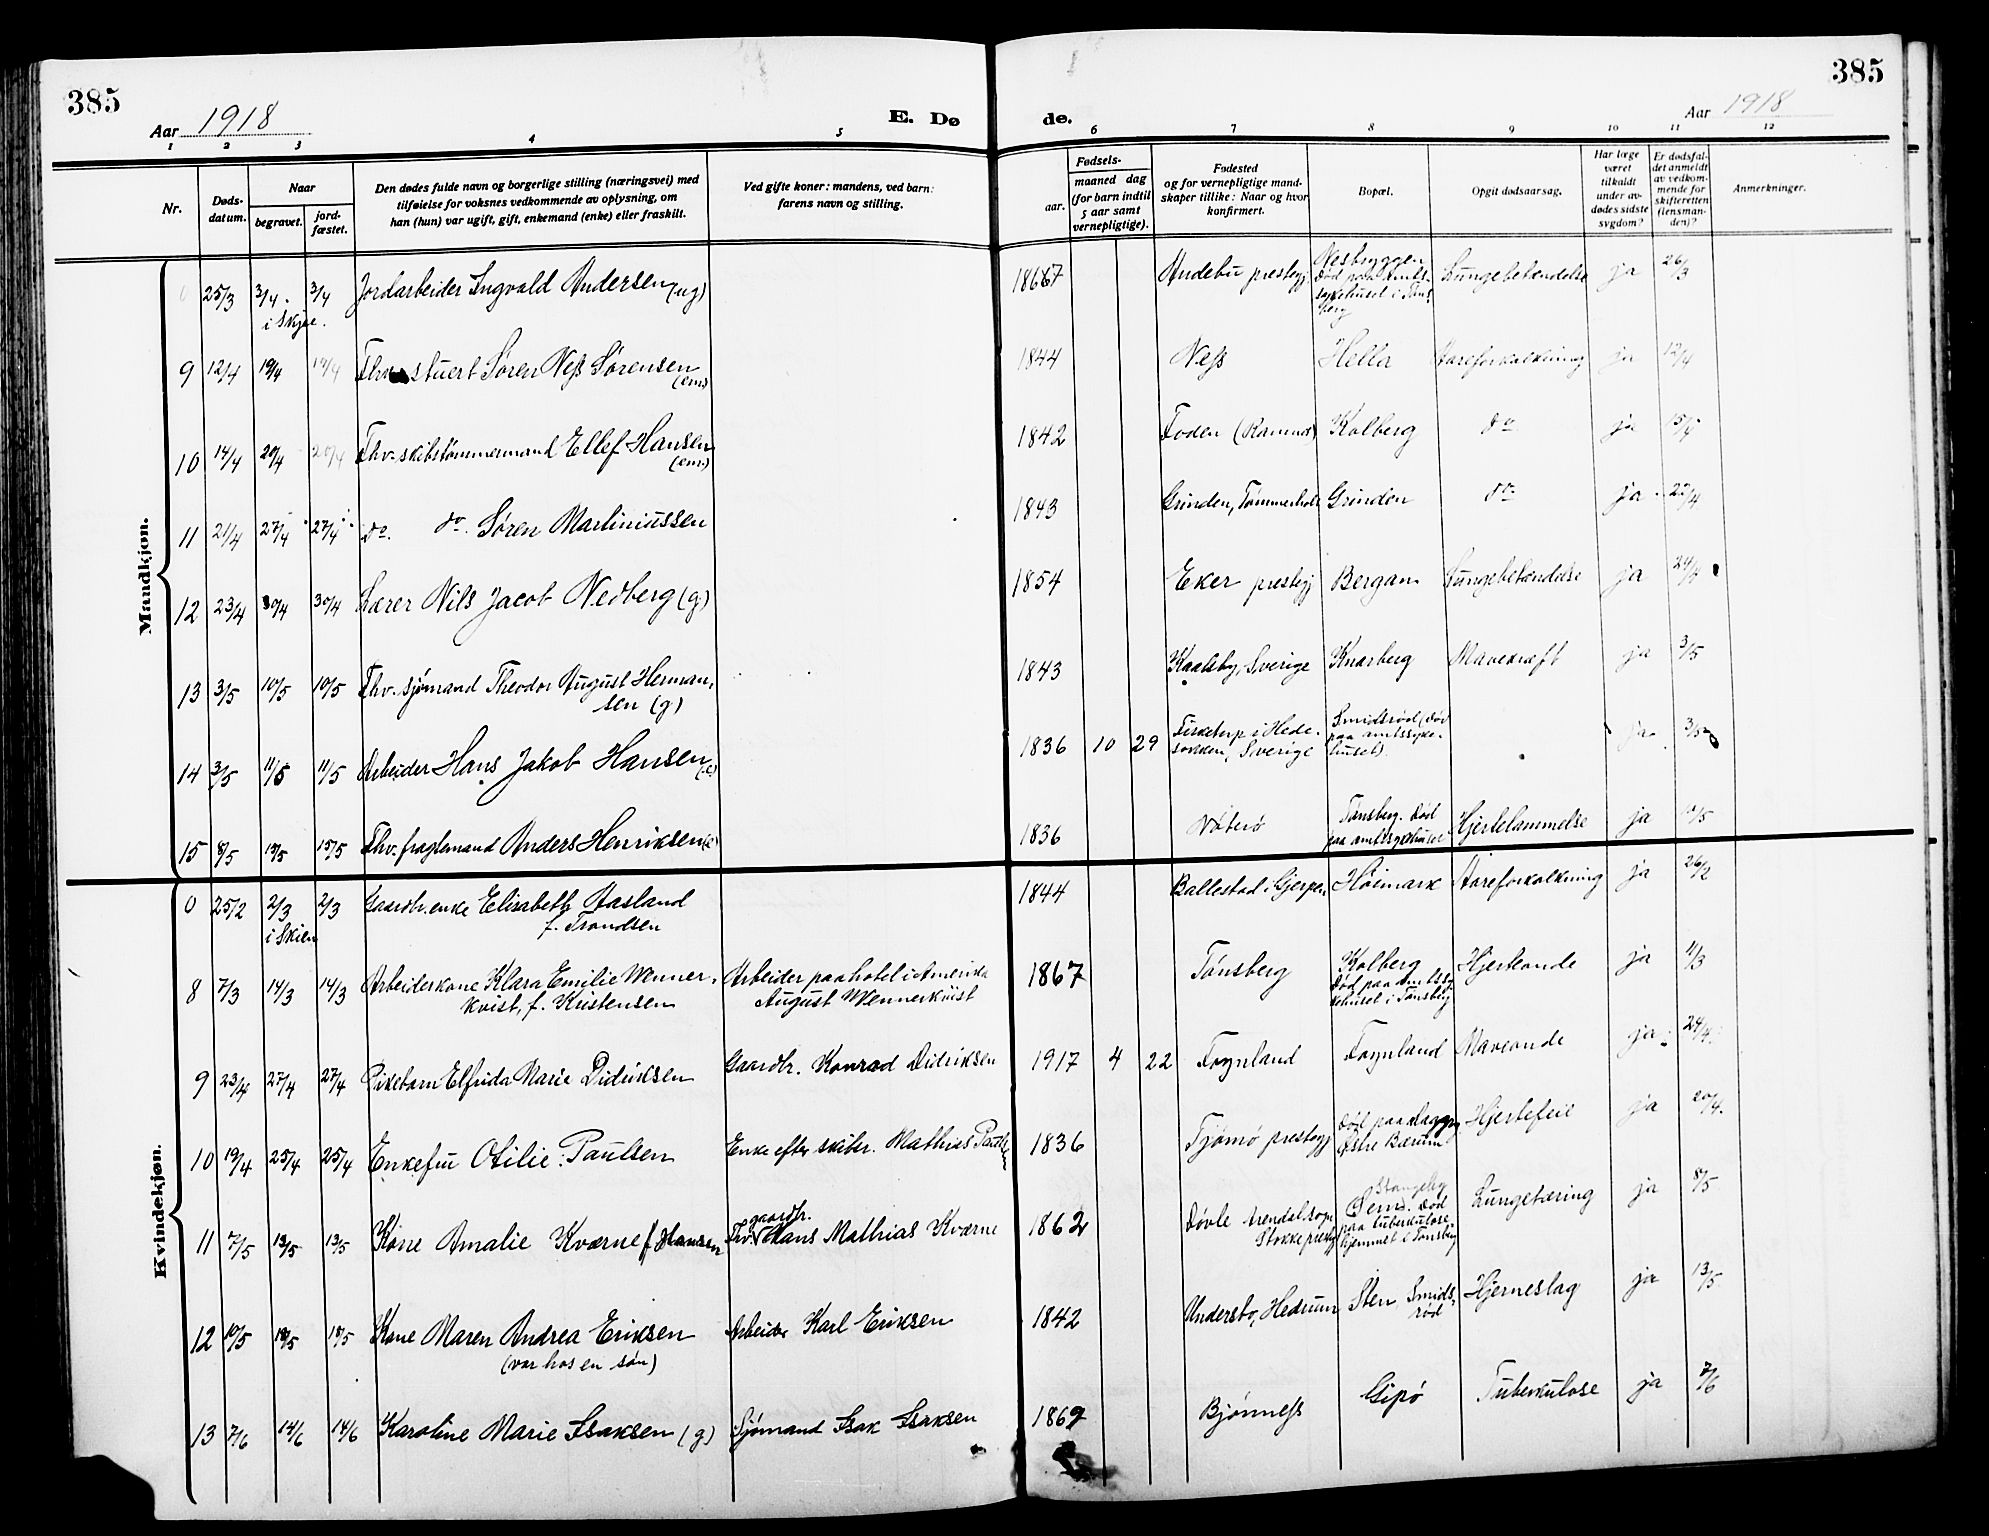 385
385
Aar 1918
E. Dø
de.
Aar 1918
1 2 3 4 5 6 7 8 9 10 11 12
Nr.
Døds-
datum.
Naar
begravet.
jord-
fæstet.
Den dødes fulde navn og borgerlige stilling (næringsvei) med
tilføielse for voksnes vedkommende av oplysning, om
han (hun) var ugift, gift, enkemand (enke) eller fraskilt.
Ved gifte koner: mandens, ved barn:
farens navn og stilling.
Fødsels-
aar.
maaned dag
(for barn indtil
5 aar samt
vernepligtige).
Fødested
og for vernepligtige mand-
skaper tillike: Naar og hvor
konfirmert.
Bopæl.
Opgit dødsaarsag.
Har læge
været
tilkaldt
under av-
dødes sidste
sygdom?
Er dødsfal-
det anmeldt
av vedkom-
mende for
skifteretten
(lensman-
den)?
Anmerkninger.
Mandkjøn.
0 25/3 3/4. 3/4 Jordarbeider Ingvald Andersen (ug) 1867 Andebu prestegj. Nesbryggen Lungebetændelse ja 26/3
i Skjee.
død paa Amts-
sykehuset i Tøns-
berg
9 12/4 19/4 19/4 Fhv. stuert Søren Ness Sørensen 1844 Ness Hella Aareforkalkning ja 12/4
(em)
10 14/4 20/4 20/4 Fhv. skibstømmermand Ellef Hansen 1842 Foden (Ramnes) Kolberg do ja 15/4
(em.)
11 21/4 27/4 27/4 do. do. Søren Martiniussen 1843 Grinden, Tømmerholt Grinden do ja 22/4
12 23/4 30/4 30/4 Lærer Nils Jacob Nedberg (g) 1854 Eker prestegj Bergan Lungebetændelse ja 24/4
13 3/5 10/5 10/5 Fhv. sjømand Theodor August Herman- 1843 Kaalsby, Sverige Knarberg Mavekræft ja 3/5
sen (g)
14 3/5 11/5 11/5 Arbeider Hans Jakob Hansen (e) 1836 10 29 i Hede- Smidsrød (død ja 3/5
sokken, Sverige paa amtssyke-
huset).
15 8/5 15/5 15/5 Fhv. fragtemand Anders Henriksen (e) 1836 Nøterø Tønsberg. Død Hjertelammelse ja 10/5
paa amtssykehuset
Kvindekjøn.
0 25/2 2/3 2/3 Gaardbr.enke Elisabeth Aasland 1844 Ballestad i Gjerpen Høimark Aareforkalkning ja 26/2
i Skien f. Trondsen
8 7/3 14/3 14/3 Arbeiderkone Klara Emilie Wenner- Arbeider paa hotel i Amerika 1867 Tønsberg Kolberg Hjerteonde ja 11/3
kvist, f. Kristensen August Wennerkvist død paa Amtssy-
kehuset i Tønsberg
9 23/4 27/4 27/4 Pikebarn Elfrida Marie Didriksen Gaardbr. Konrad Didriksen 1917 4 22 Føynland Føynland Maveonde ja 24/4
10 19/4 25/4 25/4 Enkefru Otilie Paulsen Enke efter skibsr. Mathias Paulsen 1836 Tjømø prestegj Død paa Hjertefeil ja 20/4.
Østre Bærum
11 7/5 13/5 13/5 Kone Amalie Kværne f Hansen Fhv. gaardbr. Hans Mathias Kværne 1862 Døvle Arendal sogn Stangeby Lungetæring ja 8/5
Stokke prestegj Sem. Død
paa tuberkulose-
hjemmet i Tønsberg
12 10/5 18/5 18/5 Kone Maren Andrea Eriksen Arbeider Karl Eriksen 1842 Understo, Hedrum Sten, Smids- Hjerneslag ja 13/5
(var hos en søn) rød
13 7/6 14/6 14/6 Karoline Marie Isaksen (g) Sjømand Isak Isaksen 1869 Bjønness Gipø Tuberkulose ja 7/6